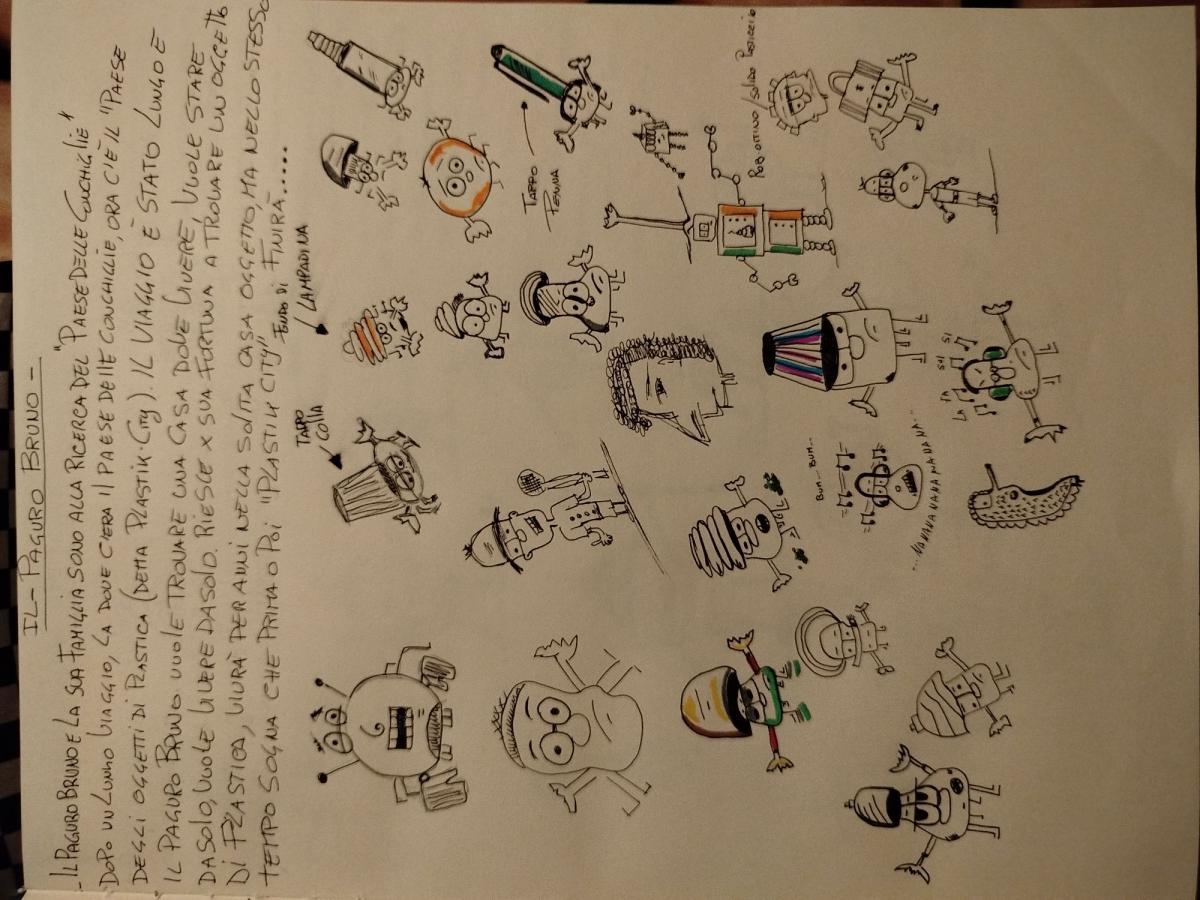 IL - PAGURO BRUNO -
- IL PAGURO BRUNO E LA SUA FAMIGLIA SONO ALLA RICERCA DEL "PAESE DELLE CONCHIGLIE"
DOPO UN LUNGO VIAGGIO, LA DOVE C'ERA IL PAESE DELLE CONCHIGLIE, ORA C'È IL "PAESE
DEGLI OGGETTI DI PLASTICA (DETTA PLASTIK-CITY). IL VIAGGIO È STATO LUNGO E
IL PAGURO BRUNO VUOLE TROVARE UNA CASA DOVE VIVERE, VUOLE STARE
DA SOLO, VUOLE VIVERE DA SOLO. RIESCE X SUA FORTUNA A TROVARE UN OGGETTO
DI PLASTICA, VIVRÀ PER ANNI NELLA SOLITA CASA OGGETTO, MA NELLO STESSO
TEMPO SOGNA CHE PRIMA O POI "PLASTIK CITY" FINIRÀ.....
FONDO DI
LAMPADINA
TAPPO
COLLA
TAPPO
PENNA
ROBOTTINO / SOLIDO
BUM... BUM...
...NAVANANANANANANA...
LA FA SOL SI